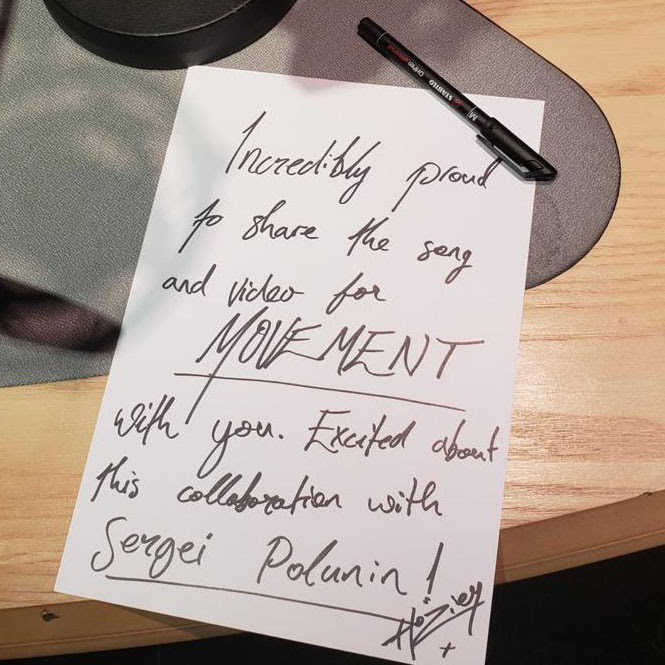 Incredibly proud
to share the song
and video for
MOVEMENT
with you. Excited about
this collaboration with
Sergei Polunin!
Hozier
STABILO OHPen universal M